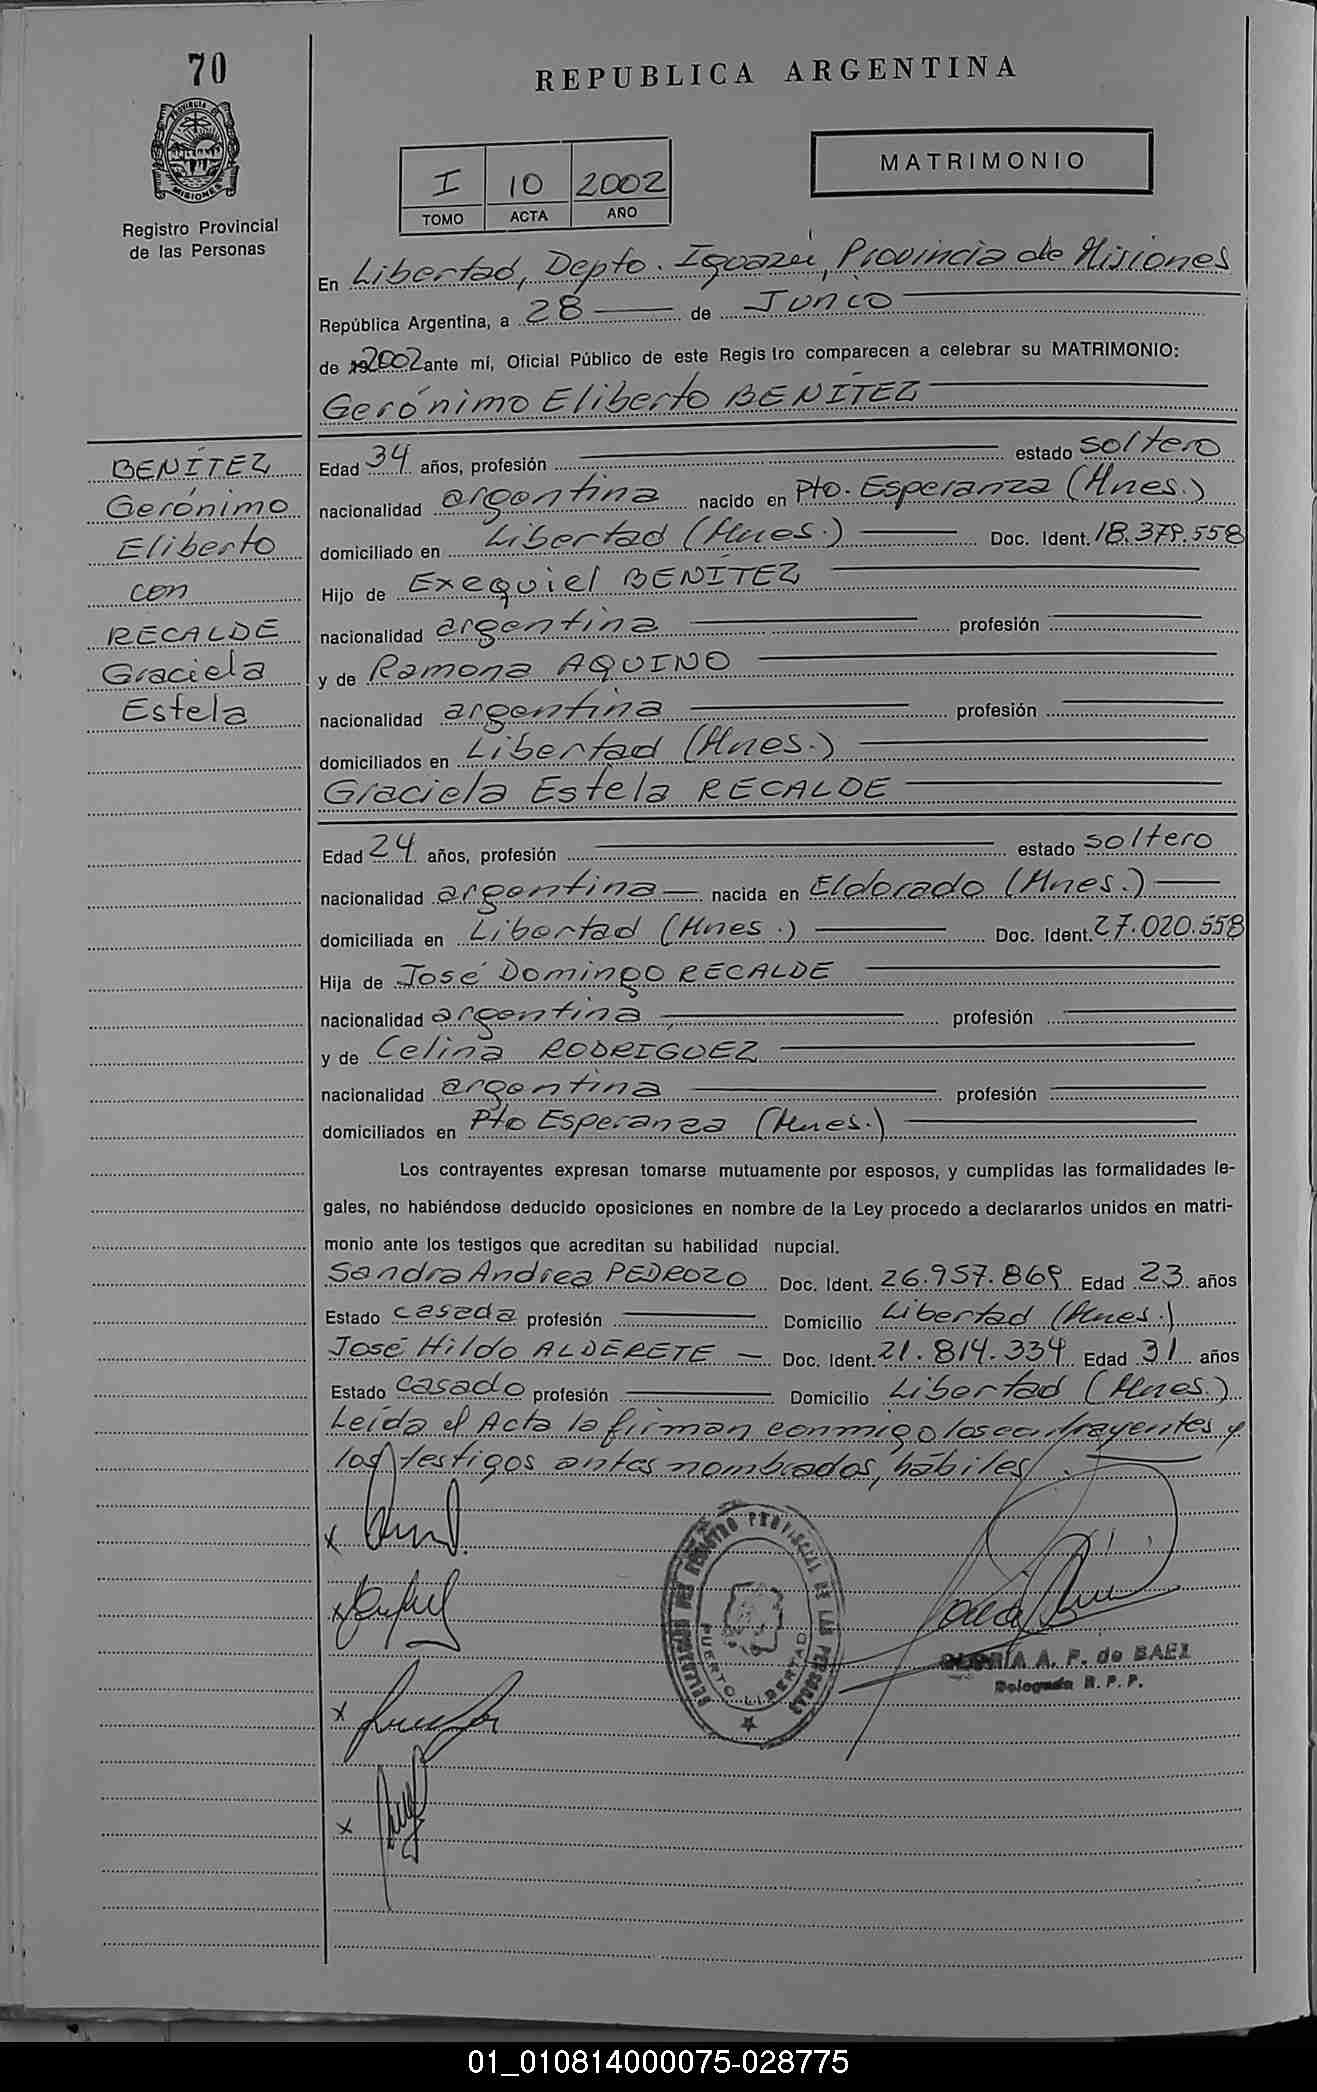 70
REPUBLICA ARGENTINA
PROVINCIA DE MISIONES
Registro Provincial
de las Personas
I 10 2002
TOMO ACTA AÑO
MATRIMONIO
En Libertad, Depto. Iguazú, Provincia de Misiones
República Argentina, a 28 de Junio
de 2002 ante mí, Oficial Público de este Registro comparecen a celebrar su MATRIMONIO:
Gerónimo Eliberto BENÍTEZ
BENÍTEZ
Gerónimo
Eliberto
con
RECALDE
Graciela
Estela
Edad 34 años, profesión estado soltero
nacionalidad argentina nacido en Pto. Esperanza (Mnes.)
domiciliado en Libertad (Mnes.) Doc. Ident. 18.379.558
Hijo de Exequiel BENÍTEZ
nacionalidad argentina profesión
y de Ramona AQUINO
nacionalidad argentina profesión
domiciliados en Libertad (Mnes.)
Graciela Estela RECALDE
Edad 24 años, profesión estado soltero
nacionalidad argentina nacida en Eldorado (Mnes.)
domiciliada en Libertad (Mnes.) Doc. Ident. 27.020.558
Hija de José Domingo RECALDE
nacionalidad argentina profesión
y de Celina RODRIGUEZ
nacionalidad argentina profesión
domiciliados en Pto Esperanza (Mnes.)
Los contrayentes expresan tomarse mutuamente por esposos, y cumplidas las formalidades le-
gales, no habiéndose deducido oposiciones en nombre de la Ley procedo a declararlos unidos en matri-
monio ante los testigos que acreditan su habilidad nupcial.
Sandra Andrea PEDROZO Doc. Ident. 26.957.869 Edad 23 años
Estado casada profesión Domicilio Libertad (Mnes.)
José Hildo ALDERETE Doc. Ident. 21.814.334 Edad 31 años
Estado casado profesión Domicilio Libertad (Mnes.)
Leída el Acta la firman conmigo los contrayentes y
los testigos antes nombrados, hábiles.
DELEGACION DEL REGISTRO PROVINCIAL DE LAS PERSONAS
PUERTO LIBERTAD
GLORIA A. F. de BAEZ
Delegada R. P. P.
01_010814000075-028775